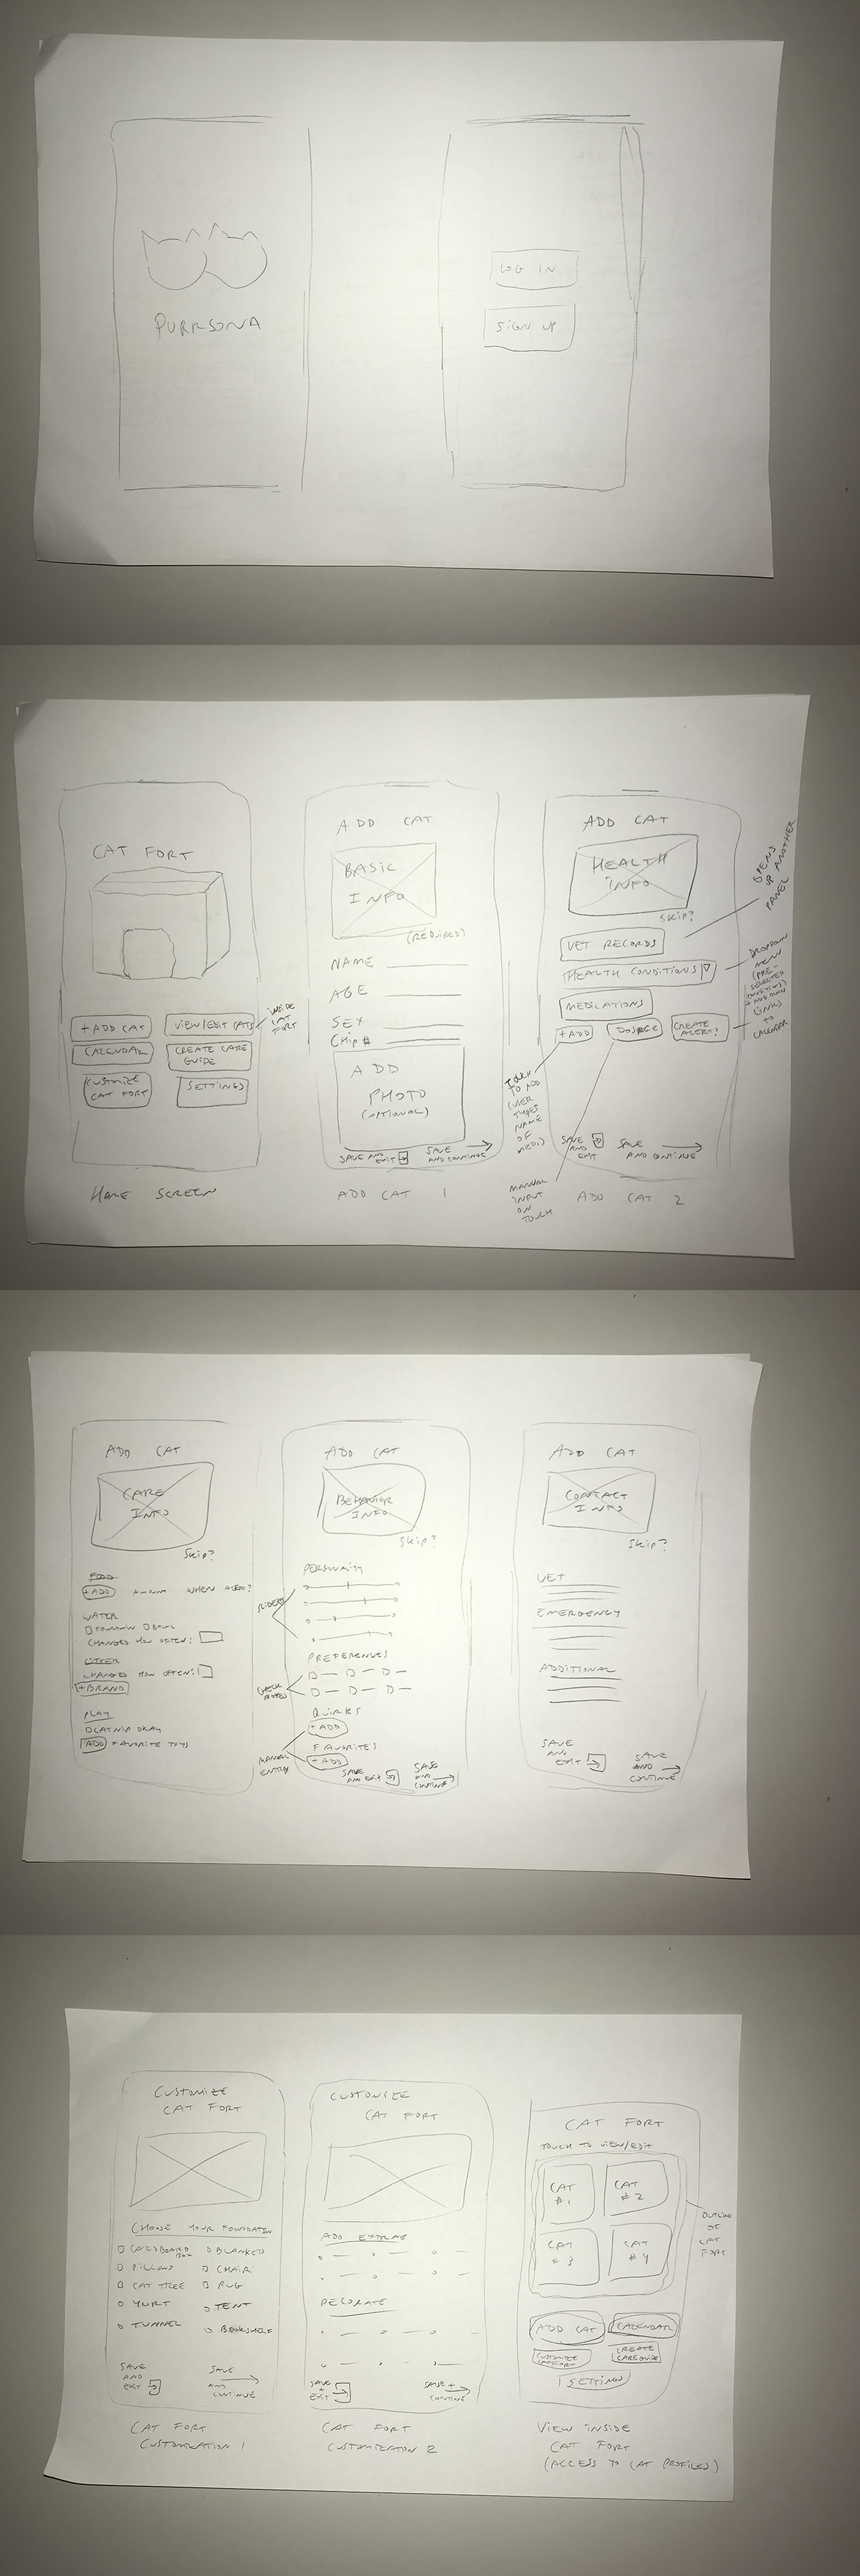 PURRSONA
LOG IN
SIGN UP
CAT FORT
+ADD CAT
VIEW/EDIT CATS
INSIDE
CAT
FORT
CALENDAR
CREATE CARE
GUIDE
CUSTMIZE
CAT FORT
SETTINGS
HOME SCREEN
ADD CAT
BASIC
INFO
(REQUIRED)
NAME
AGE
SEX
CHIP #
ADD
PHOTO
(OPTIONAL)
SAVE AND
EXIT
SAVE
AND CONTINUE
ADD CAT 1
ADD CAT
HEALTH
INFO
SKIP?
VET RECORDS
OPENS
UP ANOTHER
PANEL
HEALTH CONDITIONS
DROPDOWN
MENU
(PRE-
SELECTED
CONDITIONS)
+ ADD OWN
MEDICATIONS
+ADD
DOSAGE
CREATE
ALERT?
LINKS
TO
CALENDAR
TOUCH
TO ADD
(USER
TYPES
NAME
OF
MEDS)
MANUAL
INPUT
ON
TOUCH
SAVE
AND
EXIT
SAVE
AND CONTINUE
ADD CAT 2
ADD CAT
CARE
INFO
SKIP?
FOOD
+ADD
WHEN ALERT?
WATER
CHANGED HOW OFTEN:
LITTER
CHANGED HOW OFTEN:
+BRAND
PLAY
CATNIP OKAY
ADD FAVORITE TOYS
ADD CAT
BEHAVIOR
INFO
SKIP?
PERSONALITY
SLIDERS
PREFERENCES
CHECK
BOXES
QUIRKS
+ADD
FAVORITES
+ADD
MANUAL
ENTRY
SAVE
AND EXIT
SAVE
AND
CONTINUE
ADD CAT
CONTACT
INFO
SKIP?
VET
EMERGENCY
ADDITIONAL
SAVE
AND
EXIT
SAVE
AND
CONTINUE
CUSTOMIZE
CAT FORT
CHOOSE YOUR FOUNDATION
CARDBOARD
BOX
BLANKET
PILLOWS
CHAIR
CAT TREE
RUG
YURT
TENT
TUNNEL
BOOKSHELF
SAVE
AND
EXIT
SAVE
AND
CONTINUE
CAT FORT
CUSTOMIZATION 1
CUSTOMIZE
CAT FORT
ADD EXTRAS
DECORATE
SAVE
+
EXIT
SAVE +
CONTINUE
CAT FORT
CUSTOMIZATION 2
CAT FORT
TOUCH TO VIEW/EDIT
CAT
#1
CAT
#2
CAT
#3
CAT
#4
OUTLINE
OF
CAT
FORT
ADD CAT
CALENDAR
CUSTOMIZE
CAT FORT
CREATE
CARE GUIDE
SETTINGS
VIEW INSIDE
CAT FORT
(ACCESS TO CAT PROFILES)